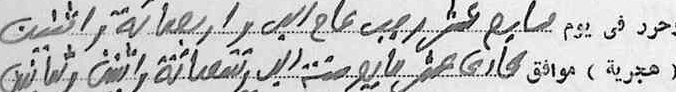 وحرر فى يوم سابع عشر رجب عام الف و اربعمائة و اثنين
( هجرية ) موافق حادى عشر مايو سنة الف وتسعمائة واثنين وثمانين